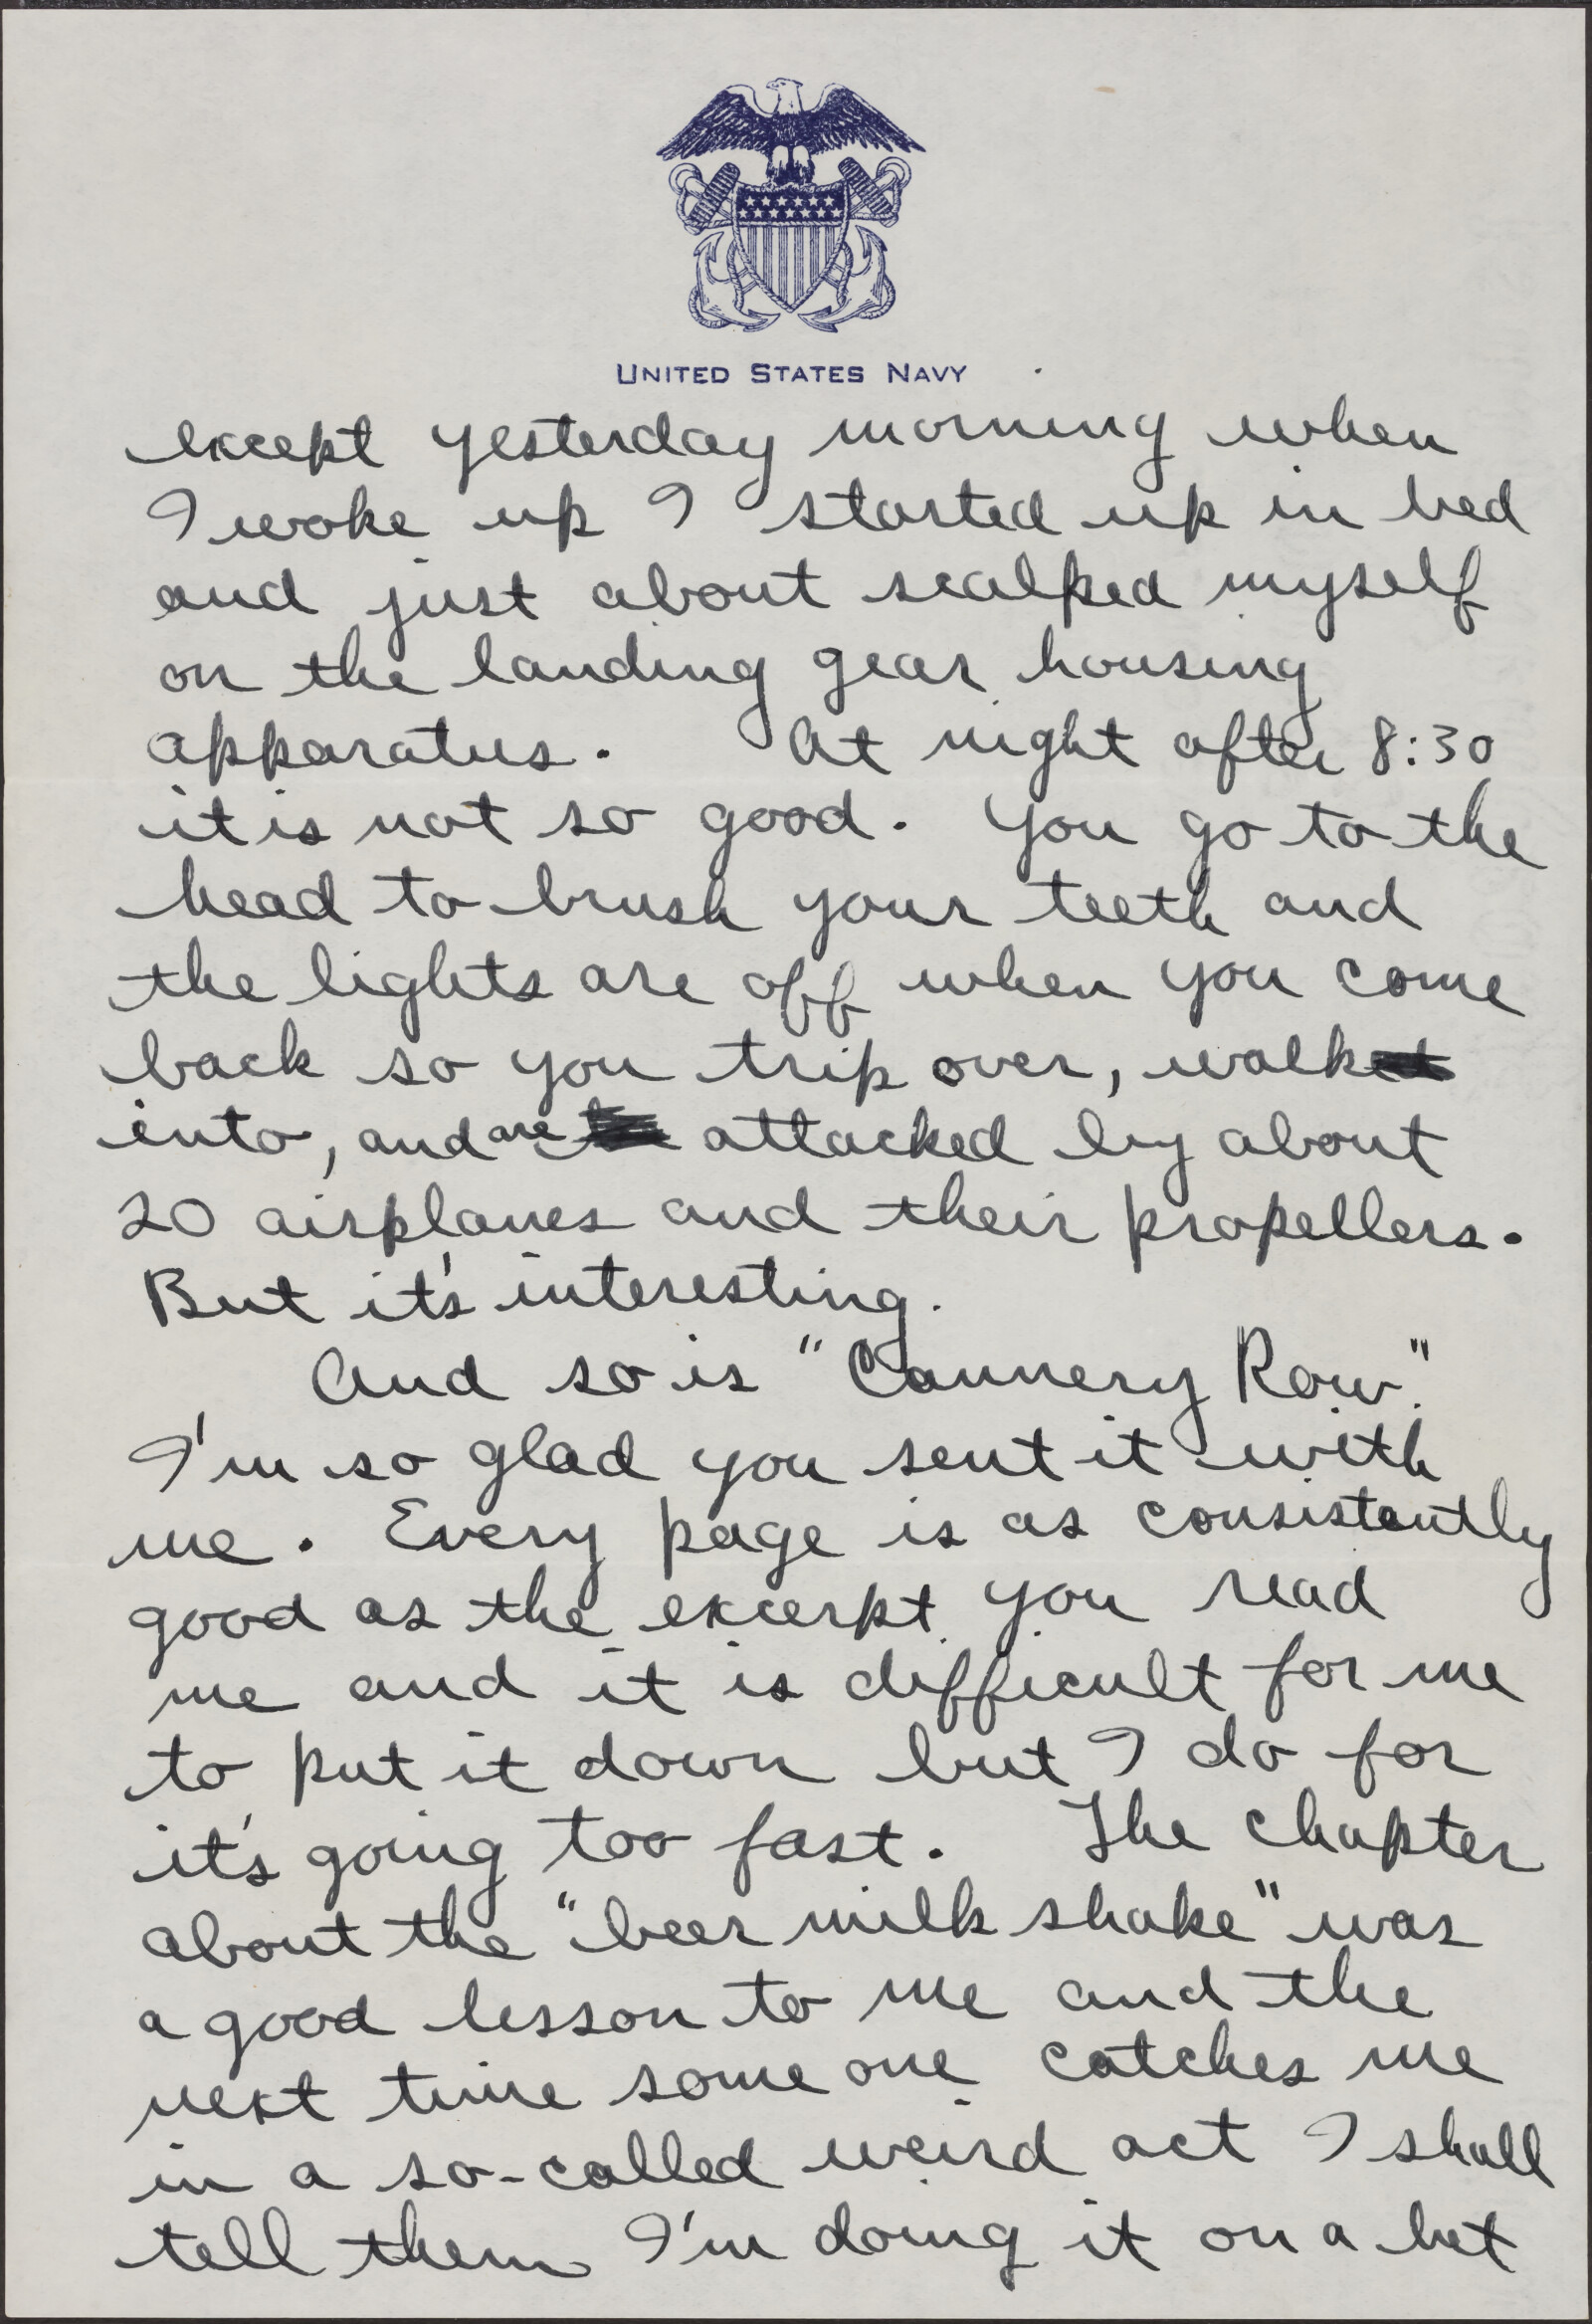 UNITED STATES NAVY
except yesterday morning when
I woke up I started up in bed
and just about scalped myself
on the landing gear housing
apparatus. At night after 8:30
it is not so good. You go to the
head to brush your teeth and
the lights are off when you come
back so you trip over, walk
into, and are attacked by about
20 airplanes and their propellers.
But it's interesting.
And so is "Cannery Row".
I'm so glad you sent it with
me. Every page is as consistently
good as the excerpt you read
me and it is difficult for me
to put it down but I do for
it's going too fast. The chapter
about the "beer milk shake" was
a good lesson to me and the
next time some one catches me
in a so-called weird act I shall
tell them I'm doing it on a bet